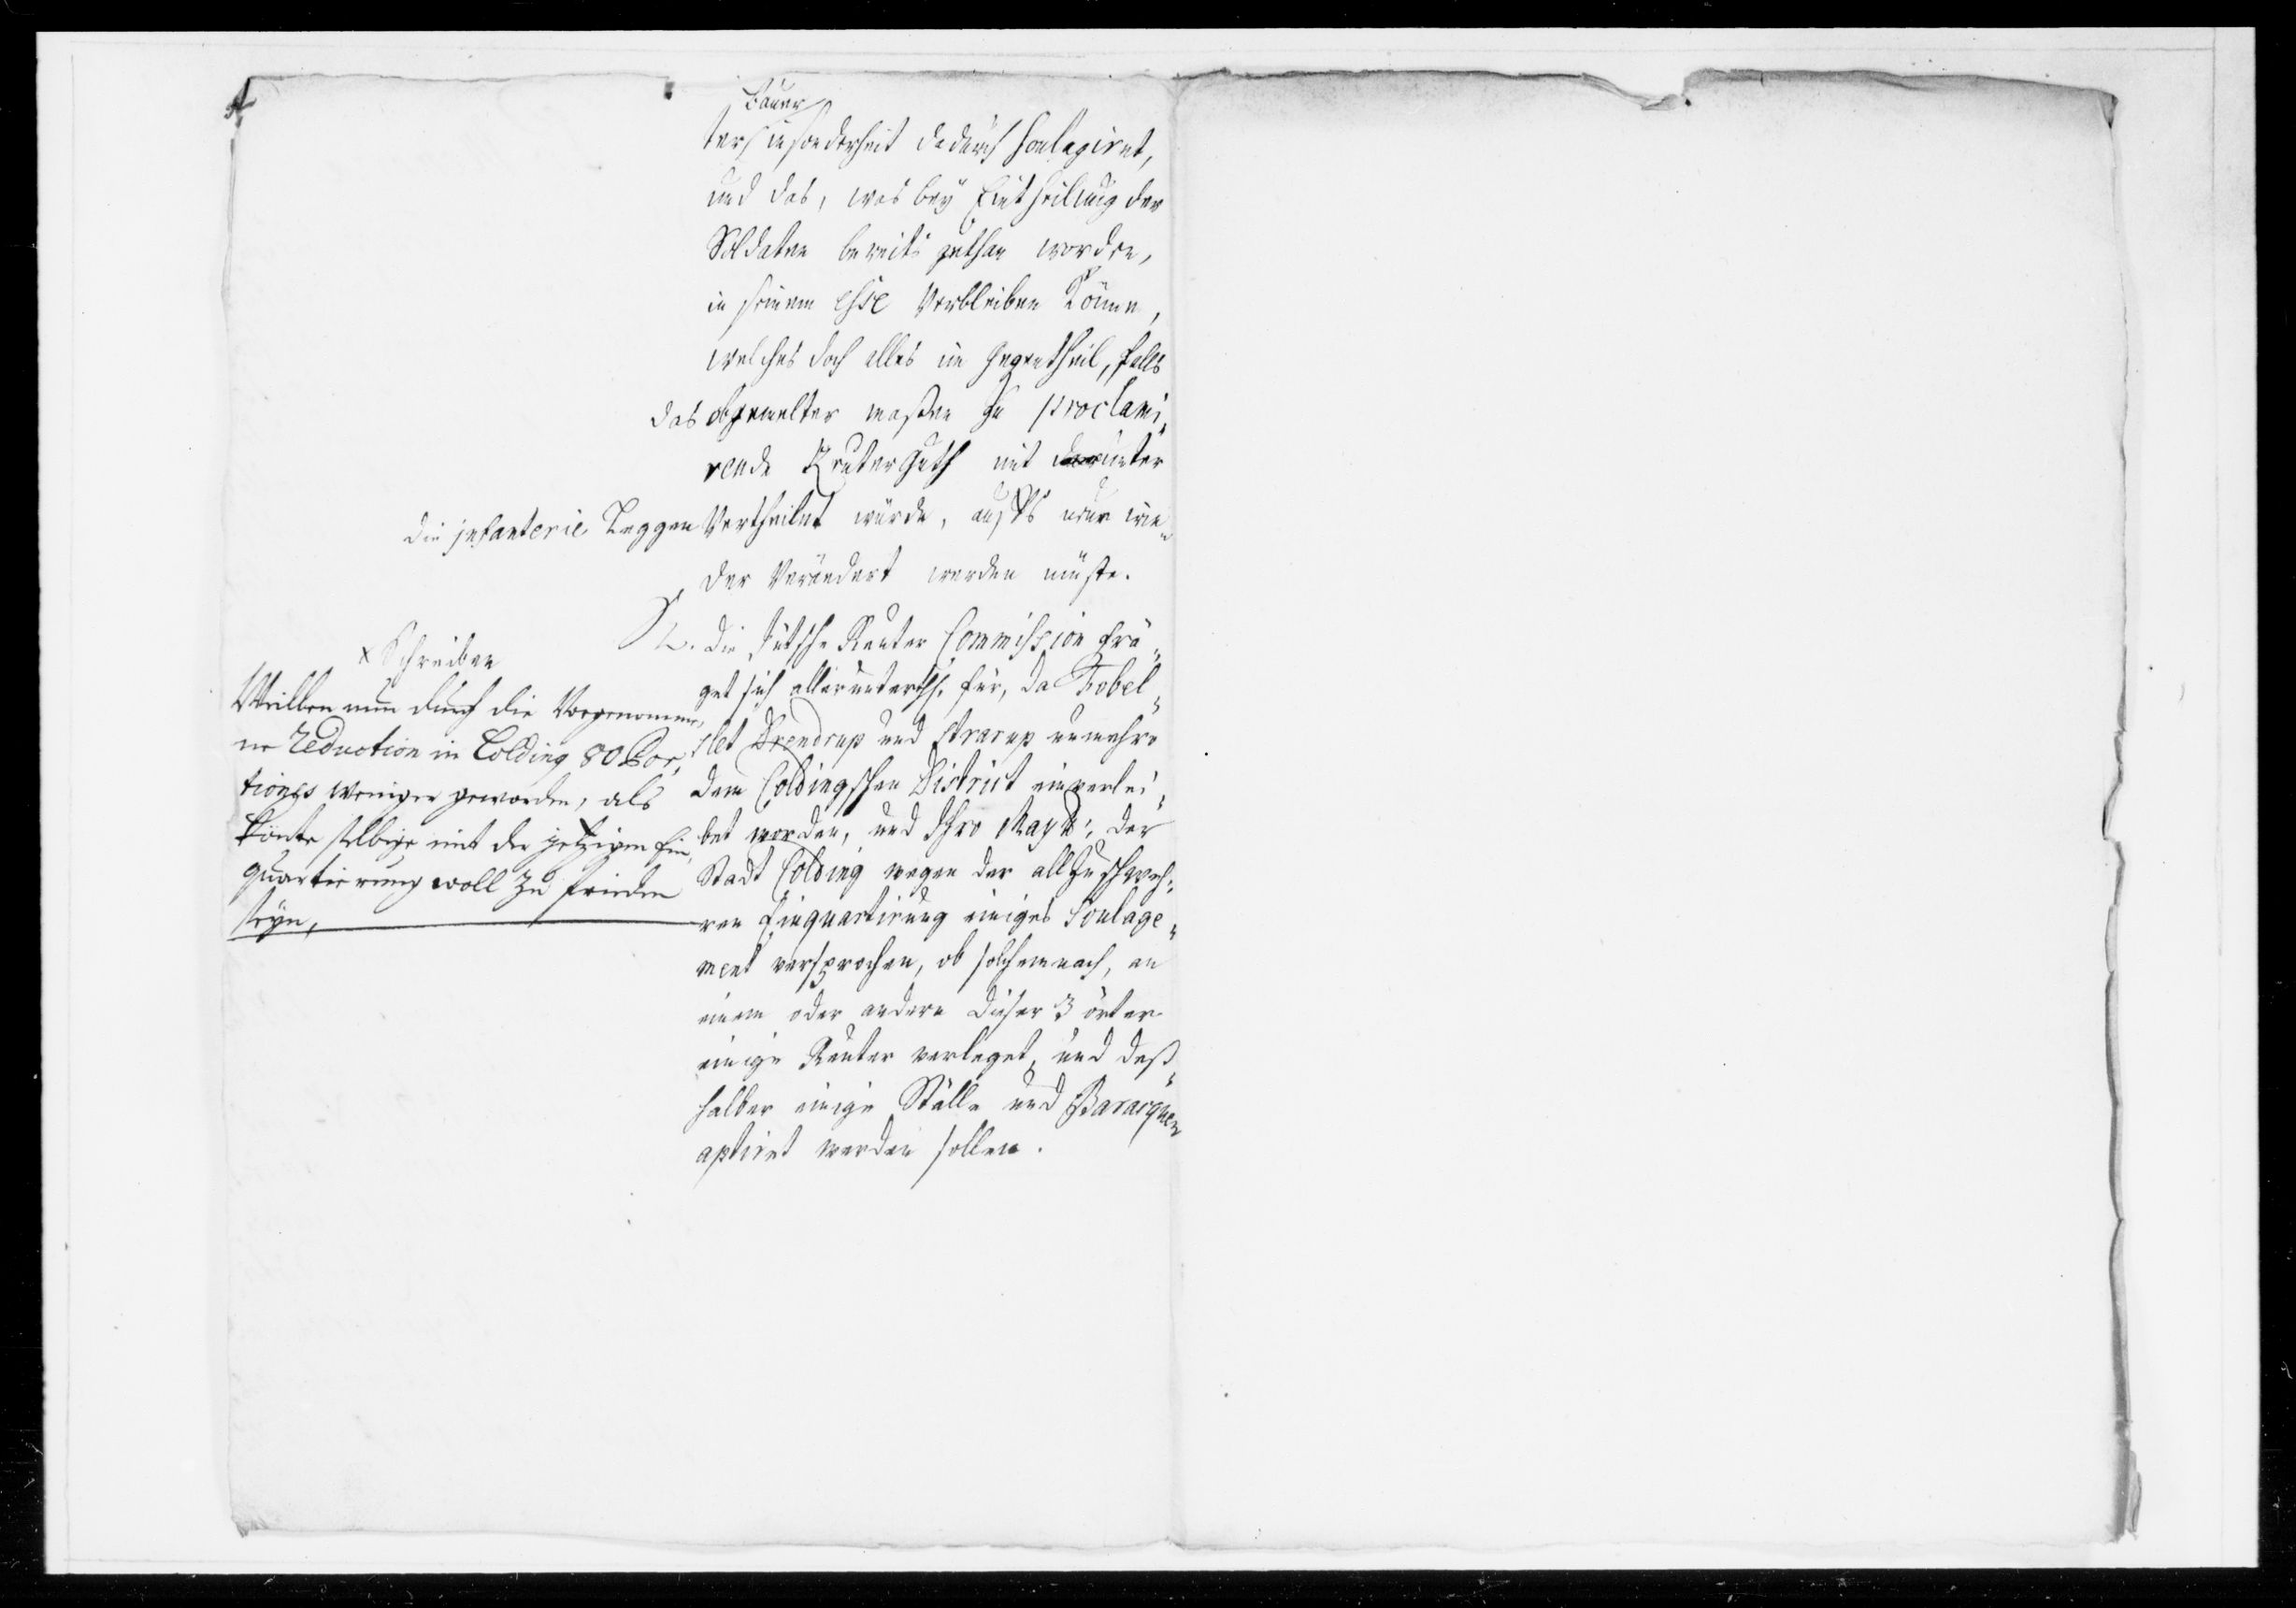 Bauer
ter insonderheit dadurch soulagiret,
und das, was bey Eintheilung der
Soldaten bereits gethan worden,
in seinem esse verbleiben könne,
welches doch alles im gegentheil, falls
das obgemelter maßen zu proclami,,
rende Reuter Guth mit darunter
die infanterie Leggen vertheilet würde, aufs neue wie,,
der verändert werden müste.
2. Die Jütsche Reuter Commission frä,,
get sich allerunterth. für, da Fobel,,
slet Drendrup und Strarup nunmehro
dem Coldingschen District einverlei,,
bet worden, und Ihro Mayt: der
Stadt Colding wegen der allzuschweh,,
ren Einquartirung einiges Soulage,,
ment versprochen, ob solchemnach, an
einem oder andern dieser 3 örter
einige Reuter verleget, und deß,,
halber einige Ställe und Baracquen
aptiret werden sollen.
x Schreiben
Weillen nun durch die Vorgenomme,,
ne Reduction in Colding 80 Por,,
tiones weniger geworden, als
könte selbige mit der jetzigen Ein,,
quartierung woll zu frieden
seyn,